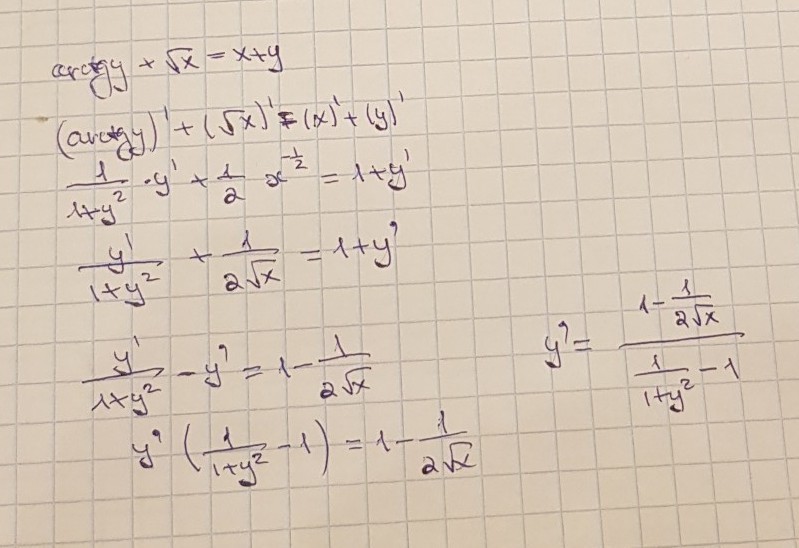 arctgy + √x = x+y
(arctgy)' + (√x)' = (x)' + (y)'
1/(1+y²) · y' + 1/2 x^(-1/2) = 1+y'
y'/(1+y²) + 1/(2√x) = 1+y'
y'/(1+y²) - y' = 1 - 1/(2√x)
y' (1/(1+y²) - 1) = 1 - 1/(2√x)
y' = (1 - 1/(2√x))/(1/(1+y²) - 1)